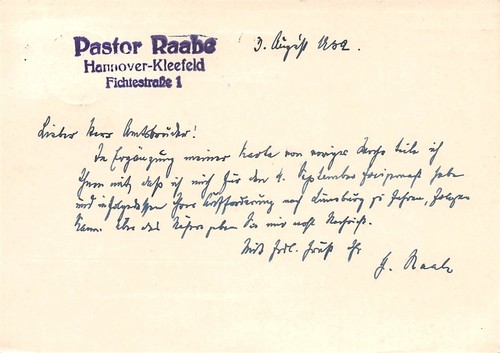 Pastor Raabe
Hannover-Kleefeld
Fichtestraße 1
3. August 1962.
Lieber Herr Amtsbruder!
In Ergänzung meiner Karte von voriger Woche teile ich
Ihnen mit, daß ich mich für den 4. September freigemacht habe
und infolgedessen Ihrer Aufforderung nach Lüneburg zu fahren, Folge leisten
kann. Über das Nähere geben Sie mir noch Nachricht.
Mit frdl. Gruß Ihr
Raabe